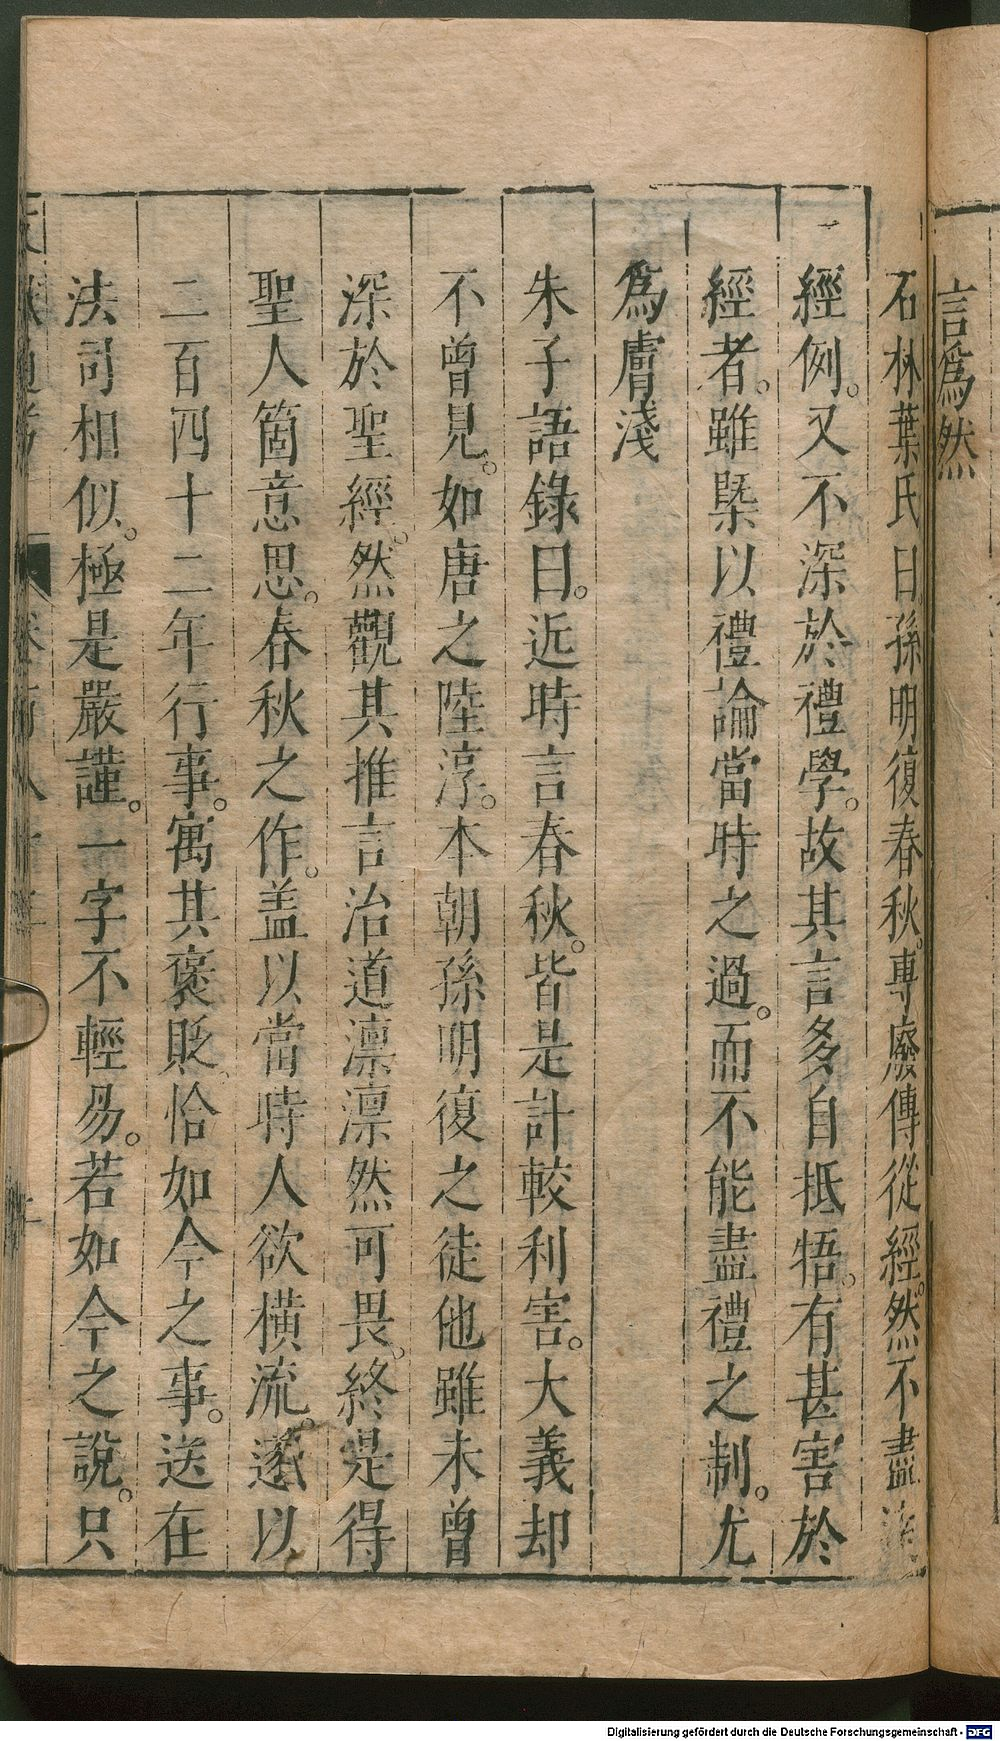 言爲然
石林葉氏曰孫明復春秋。專廢傳從經。然不盡達
經例。又不深於禮學。故其言多自抵牾。有甚害於
經者。雖槩以禮論當時之過。而不能盡禮之制。尤
爲膚淺
朱子語錄曰。近時言春秋。皆是計較利害。大義却
不曾見。如唐之陸淳。本朝孫明復之徒他雖未曾
深於聖經。然觀其推言治道凛凛然可畏。終是得
聖人箇意思。春秋之作。盖以當時人欲橫流。遂以
二百四十二年行事。寓其褒貶。恰如今之事。送在
法司相似。極是嚴謹。一字不輕易。若如今之說。只
Digitalisierung gefördert durch die Deutsche Forschungsgemeinschaft - DFG